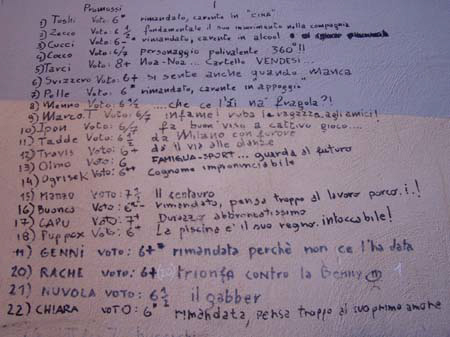 Promossi
1) Toshi Voto: 6* rimandato, carente in "CIMA"
2) Zocco Voto: 6 1/2 fondamentale il suo inserimento nella compagnia
3) Cucci Voto: 6-* rimandato, carente in alcool
4) Cocco Voto: 6/7 personaggio polivalente 360°!!
5) Tarci Voto: 8+ Noa-Noa... Cartello VENDESI...
6) Svizzero Voto: 6+ si sente anche quando manca
7) Pelle Voto: 6* rimandato, carente in "appoggio"
8) Menno Voto: 6 1/2 ....che ce l'ai na' fragola?!
9) Marco.T Voto: 6/7 infame! ruba la ragazza agli amici!
10) Ipon Voto: 6/7 fa buon viso a cattivo gioco....
11) Tadde Voto: 6 1/2 da Milano con furore
12) Travis Voto: 6+ dà il via alle danze
13) Olmo Voto: 6 FAMIGLIA-SPORT... guarda al futuro
14) Ogrisek Voto: 6++ Cognome impronunciabile
15) Manzo Voto: 7 1/2 Il centauro
16) Buonca Voto: 6-* rimandato, pensa troppo al lavoro porco.i.!
17) CAPU Voto: 7+ Durazzo abbronzatissimo
18) Puppax Voto: 6+ La piscina e' il suo regno. intoccabile!
19) GENNI VOTO: 6+* rimandata perchè non ce l'ha data
20) RACHE VOTO: 6+ trionfa contro la Benny
21) NUVOLA VOTO: 6 1/2 il gabber
22) CHIARA VOTO: 6* rimandata, pensa troppo al suo primo amore